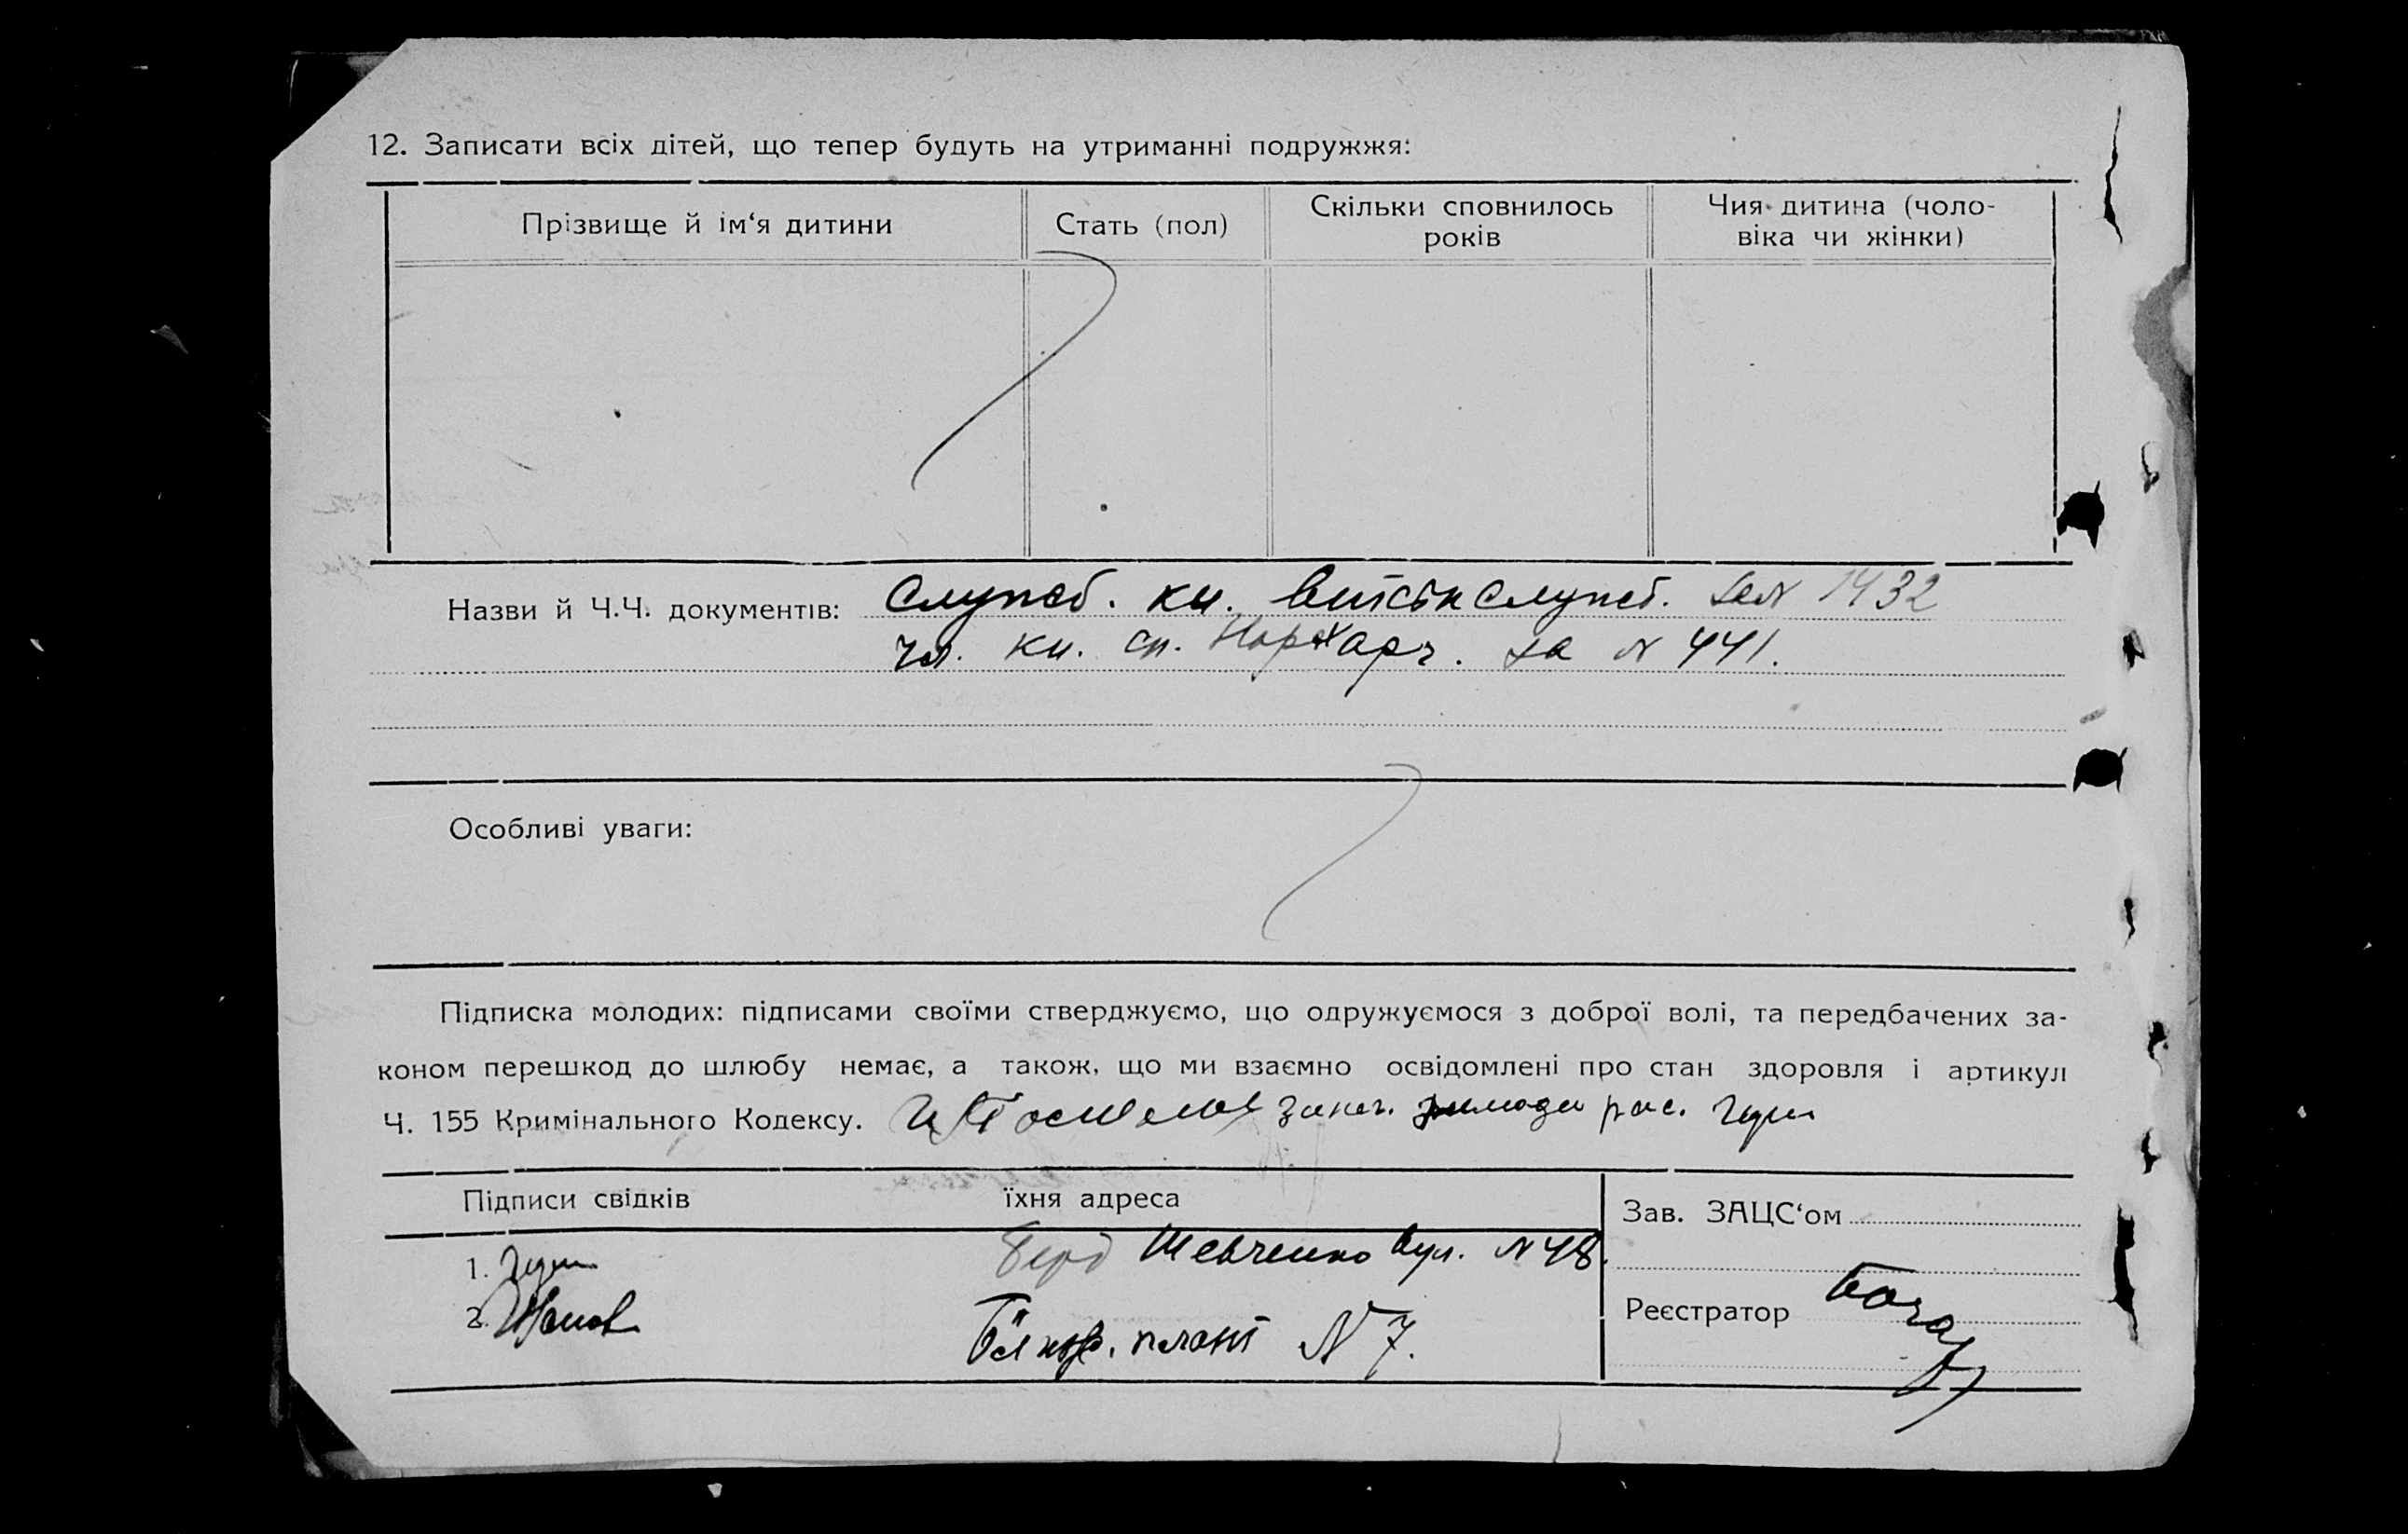 12. Записати всіх дітей, що тепер будуть на утриманні подружжя:
Прізвище й ім‘я дитини
Стать (пол)
Скільки сповнилось
років
Чия дитина (чоло-
віка чи жінки)
Назви й Ч.Ч. документів: Служб. кн. за N 1432
чл. кн. сп. НарХарч. за N 441.
Особливі уваги:
Підписка молодих: підписами своїми стверджуємо, що одружуємося з доброї волі, та передбачених за-
коном перешкод до шлюбу немає, а також, що ми взаємно освідомлені про стан здоровля і артикул
Ч. 155 Кримінального Кодексу.
Підписи свідків
їхня адреса
Зав. ЗАЦС‘ом
1.
Шевченко вул. N 48.
2.
N 7.
Реєстратор